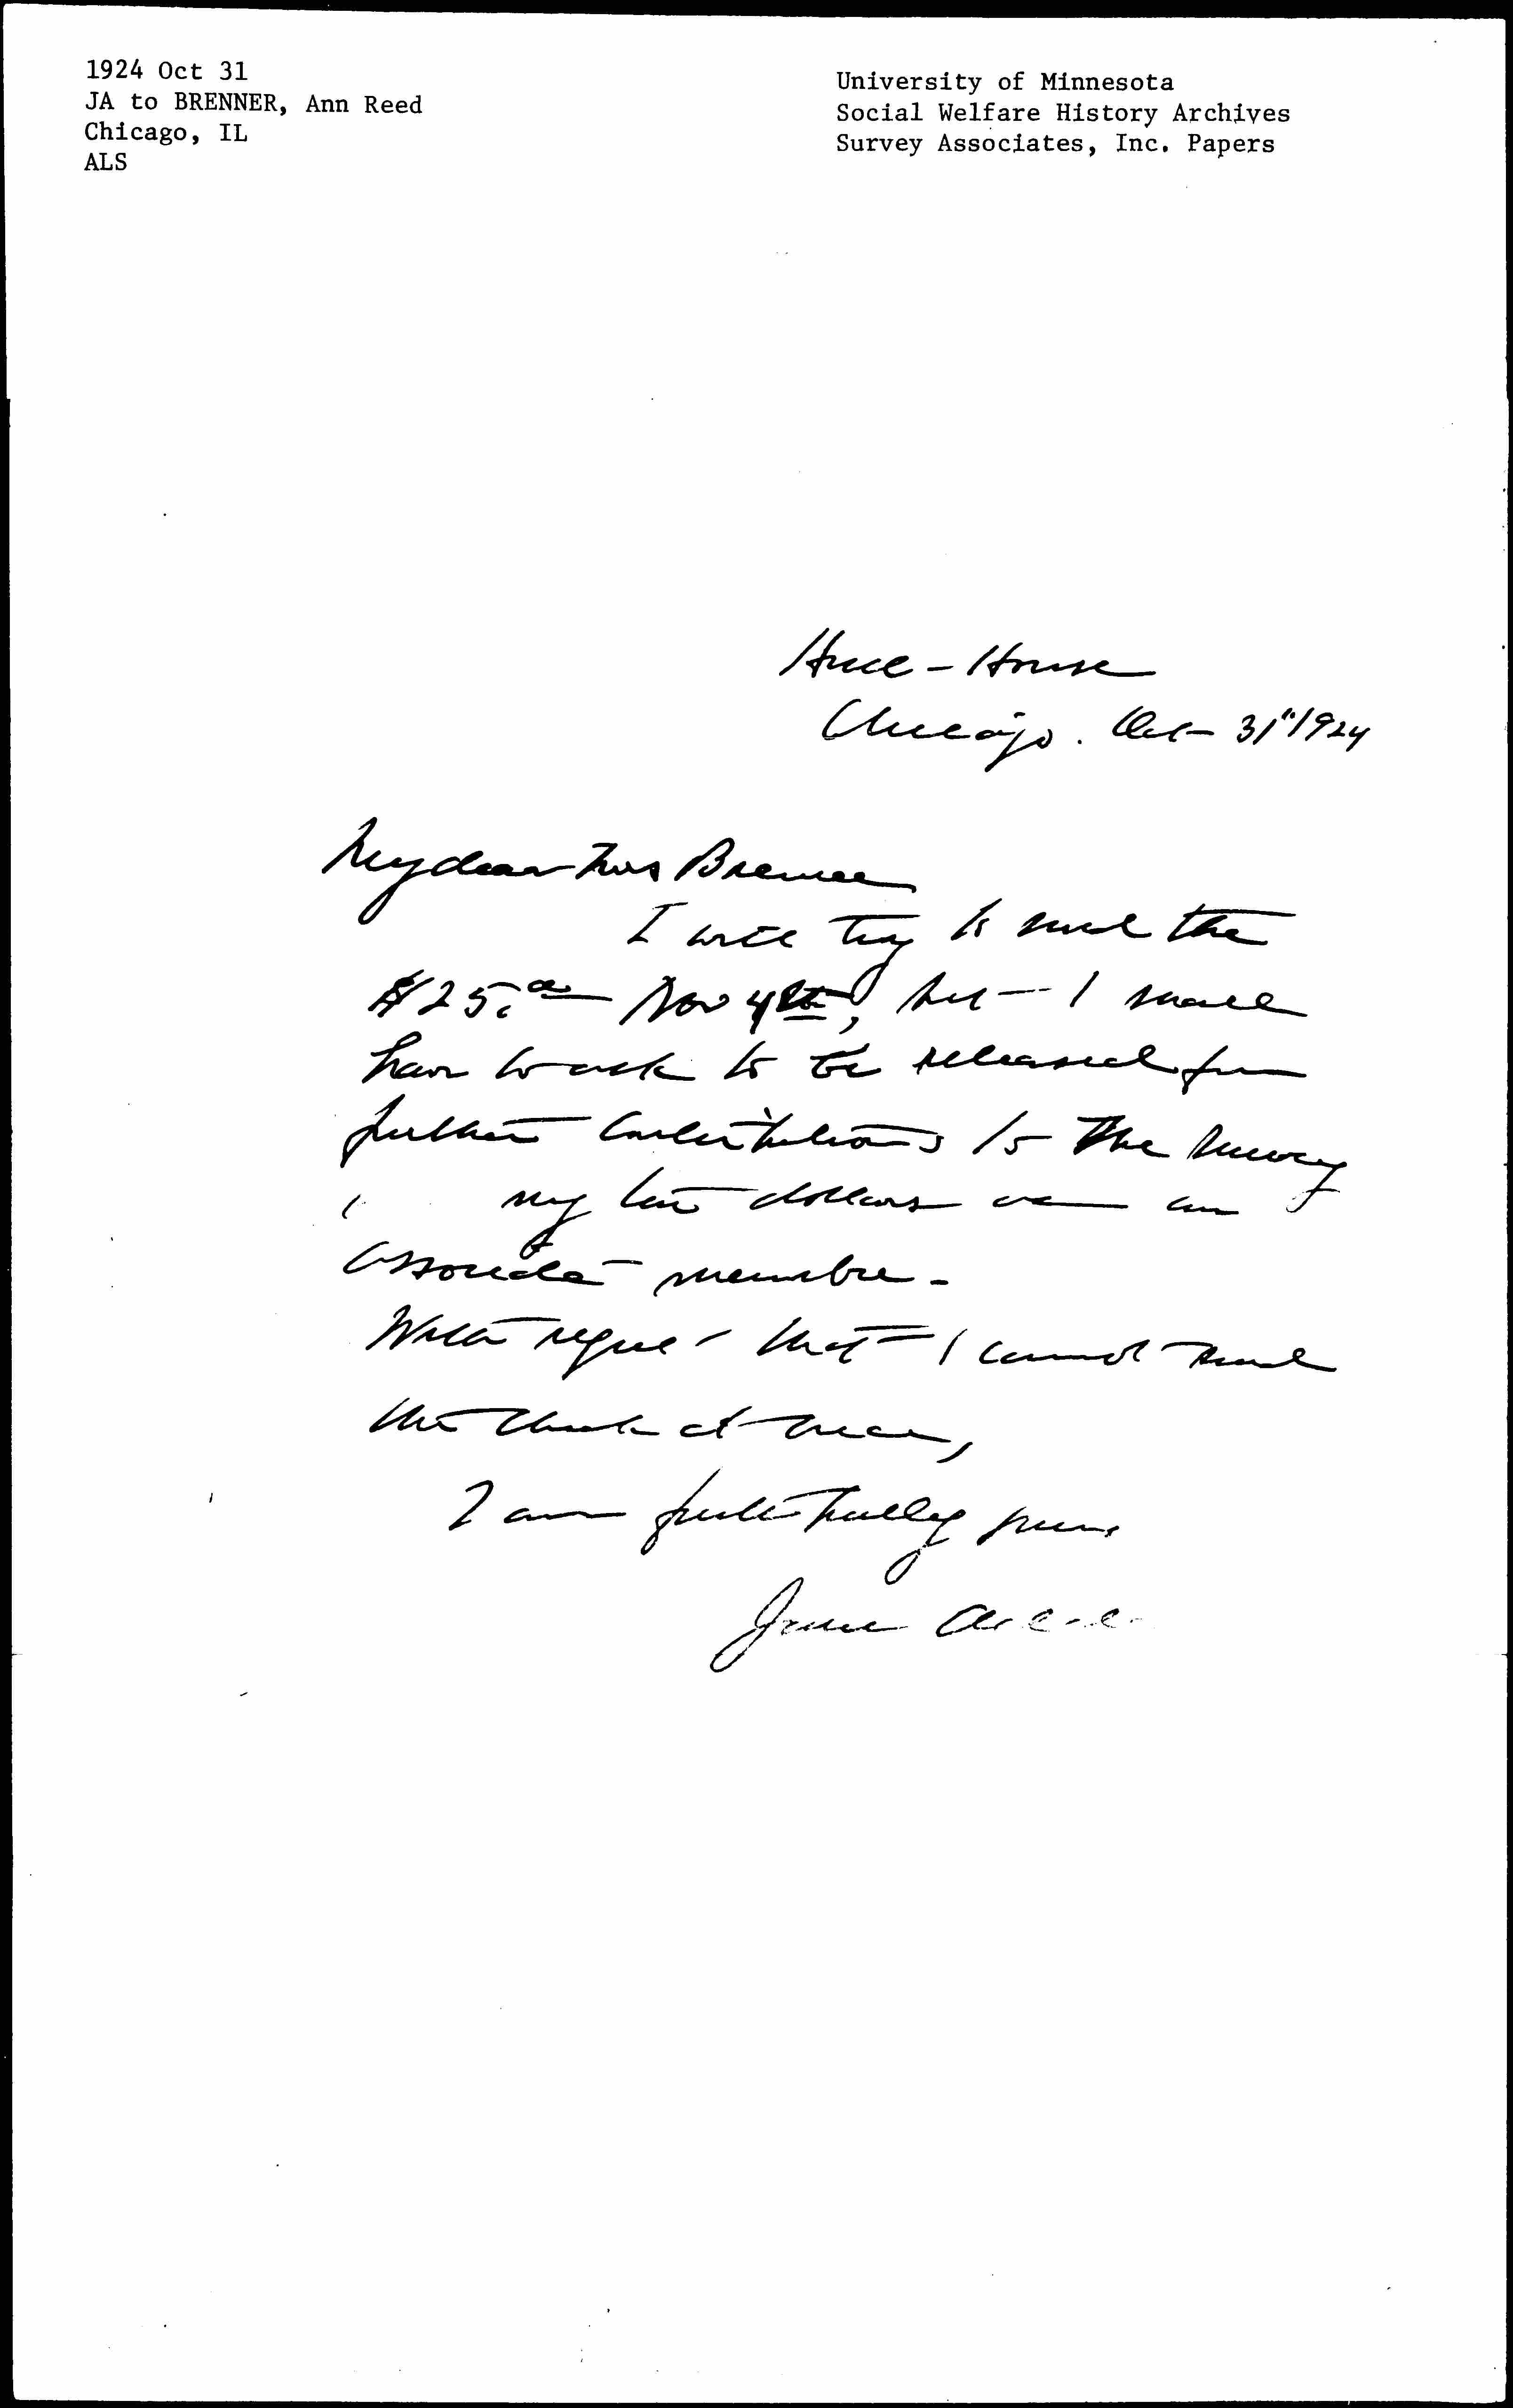 1924 Oct 31
JA to BRENNER, Ann Reed
Chicago, IL
ALS
University of Minnesota
Social Welfare History Archives
Survey Associates, Inc. Papers
Hull-House
Chicago. Oct 31" 1924
My dear Miss Brenner
I will try to send the
$25.00 Nov 4th, but I shall
have to ask to be released from
further contributions to The Survey
my ten dollars as an
associate member -
With regret that I cannot send
the check at once,
I am faithfully yours
Jane Addams